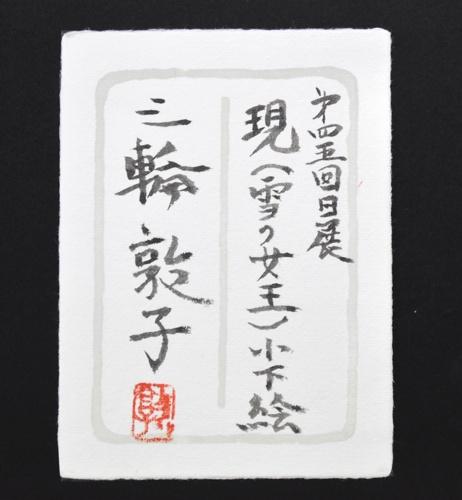 第四五回日展
現（雪の女王）小下絵
三輪敦子
敦